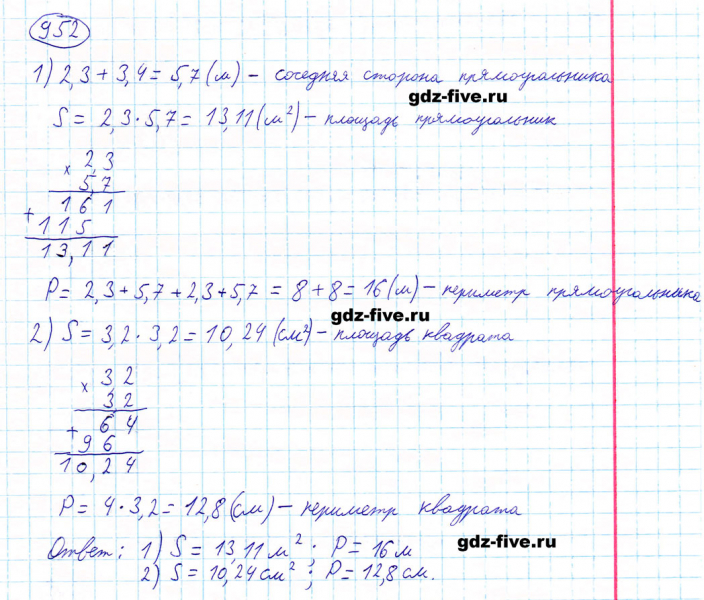 952
1) 2,3 + 3,4 = 5,7 (м) - соседняя сторона прямоугольника
gdz-five.ru
S = 2,3 · 5,7 = 13,11 (м²) - площадь прямоугольник
× 2,3
5,7
+ 161
115
13,11
P = 2,3 + 5,7 + 2,3 + 5,7 = 8 + 8 = 16 (м) - периметр прямоугольника
gdz-five.ru
2) S = 3,2 · 3,2 = 10,24 (см²) - площадь квадрата
× 3,2
3,2
+ 64
96
10,24
P = 4 · 3,2 = 12,8 (см) - периметр квадрата
Ответ: 1) S = 13,11 м²; P = 16 м
gdz-five.ru
2) S = 10,24 см²; P = 12,8 см.